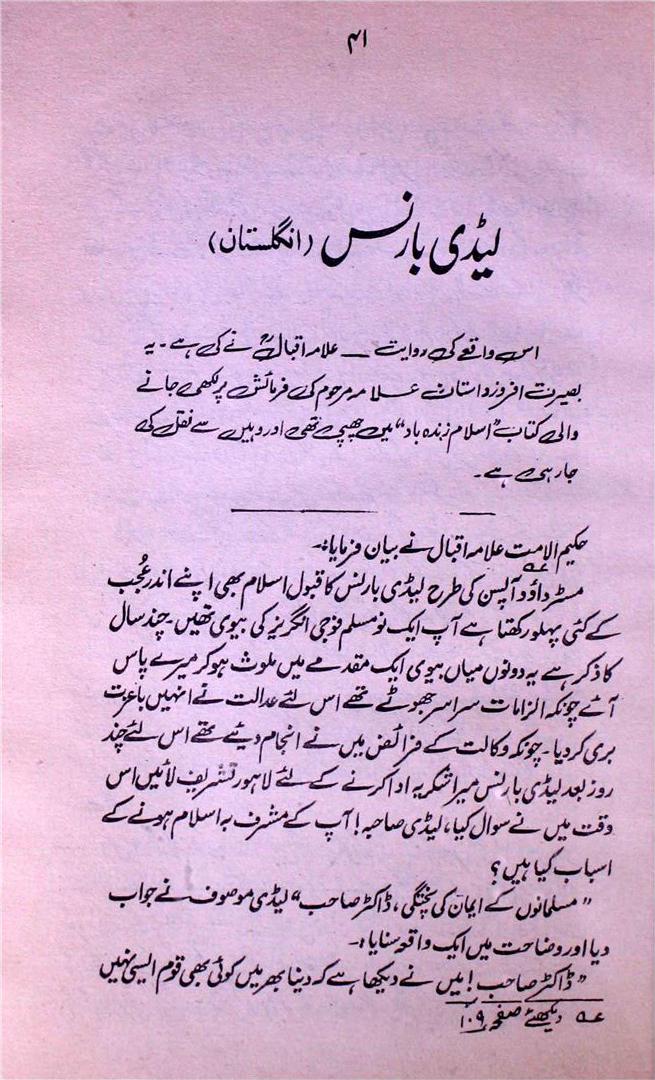 ۴۱
لیڈی بارنس (انگلستان)
اس واقعے کی روایت — علامہ اقبالؒ نے کی ہے۔ یہ
بصیرت افروز داستان علامہ مرحوم کی فرمائش پر لکھی جانے
والی کتاب "اسلام زندہ باد" میں چھپی تھی اور وہیں سے نقل کی
جا رہی ہے۔
حکیم الامت علامہ اقبال نے بیان فرمایا:۔
مسٹر داؤد آپسن کی طرح لیڈی بارنس کا قبول اسلام بھی اپنے اندر عُجب
کے کئی پہلو رکھتا ہے آپ ایک نومسلم فوجی انگریز کی بیوی تھیں۔ چند سال
کا ذکر ہے یہ دونوں میاں بیوی ایک مقدمے میں ملوث ہو کر میرے پاس
آئے چونکہ الزامات سراسر جھوٹے تھے اس لئے عدالت نے انہیں باعزت
بری کر دیا۔ چونکہ وکالت کے فرائض میں نے انجام دیئے تھے اس لئے چند
روز بعد لیڈی بارنس میرا شکریہ ادا کرنے کے لئے لاہور تشریف لائیں اس
وقت میں نے سوال کیا، لیڈی صاحبہ! آپ کے مشرف بہ اسلام ہونے کے
اسباب کیا ہیں؟
"مسلمانوں کے ایمان کی پختگی، ڈاکٹر صاحب" لیڈی موصوف نے جواب
دیا اور وضاحت میں ایک واقعہ سنایا:۔
"ڈاکٹر صاحب! میں نے دیکھا ہے کہ دنیا بھر میں کوئی بھی قوم ایسی نہیں
دیکھئے صفحہ ۱۰۹